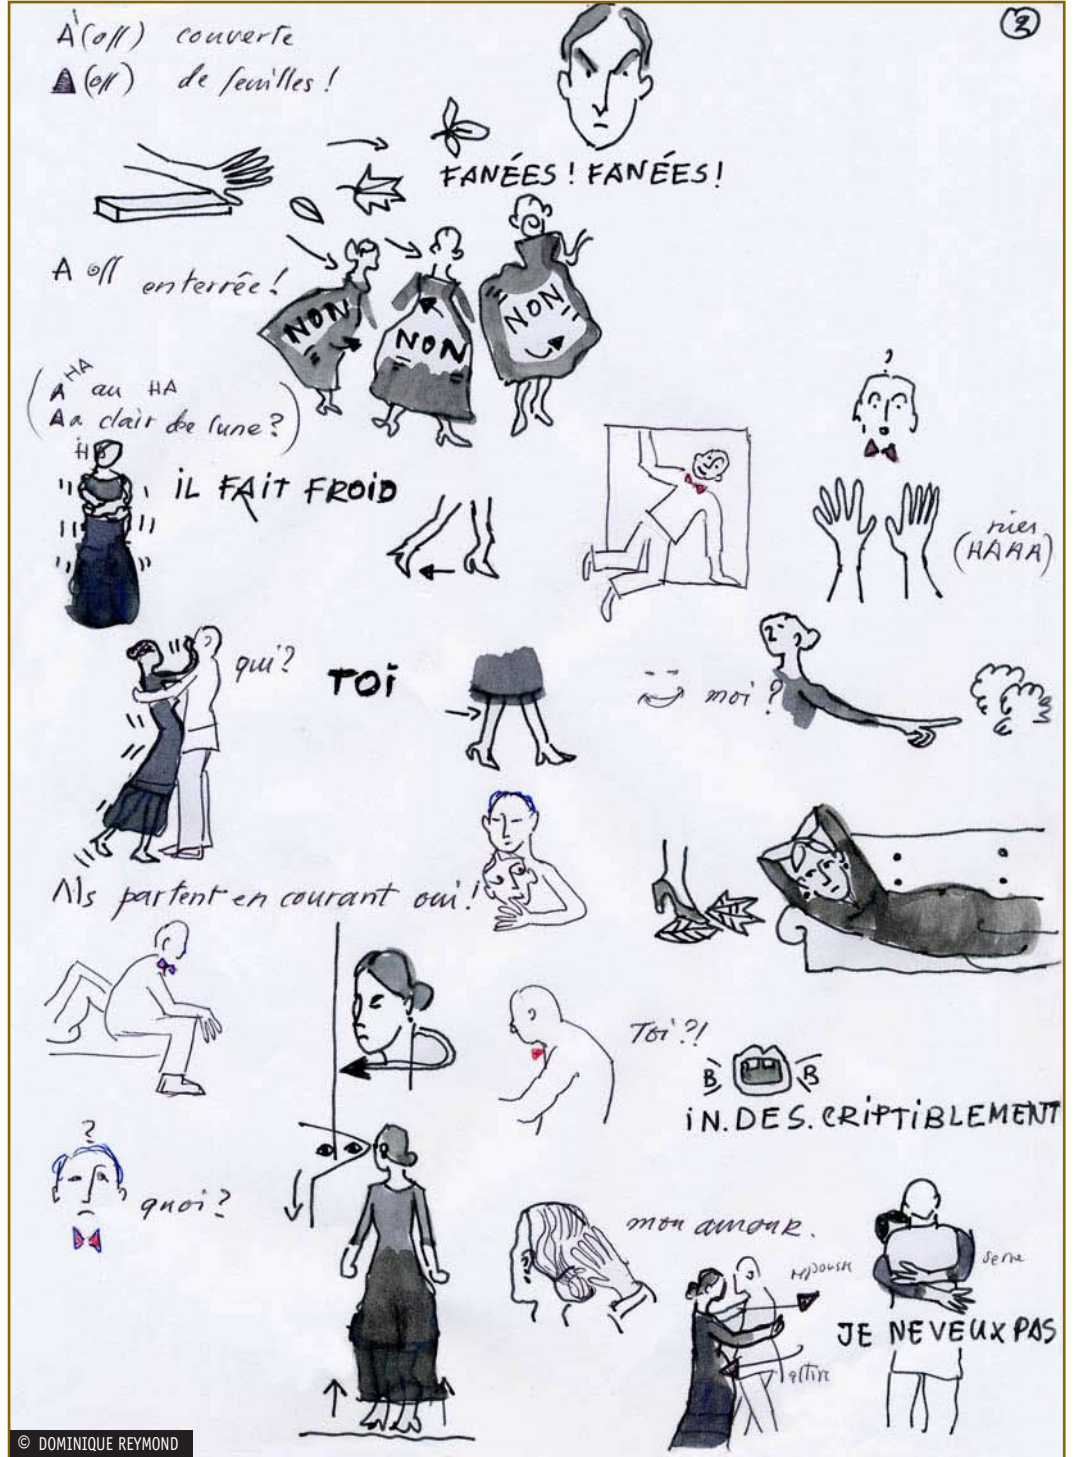 2
A (off) couverte
A (off) de feuilles !
FANÉES ! FANÉES !
A off enterrée !
NON
NON
NON
HA
(A au HA
A a clair de lune ?)
iL FAiT FROiD
?
rires
(HAAA)
qui ?
TOi
moi ?
Ils partent en courant oui !
Toi ?!
B B
iN. DES. CRiPTiBLEMENT
?
quoi ?
mon amour.
repousse
serre
JE NE VEUX PAS
attire
© DOMINIQUE REYMOND